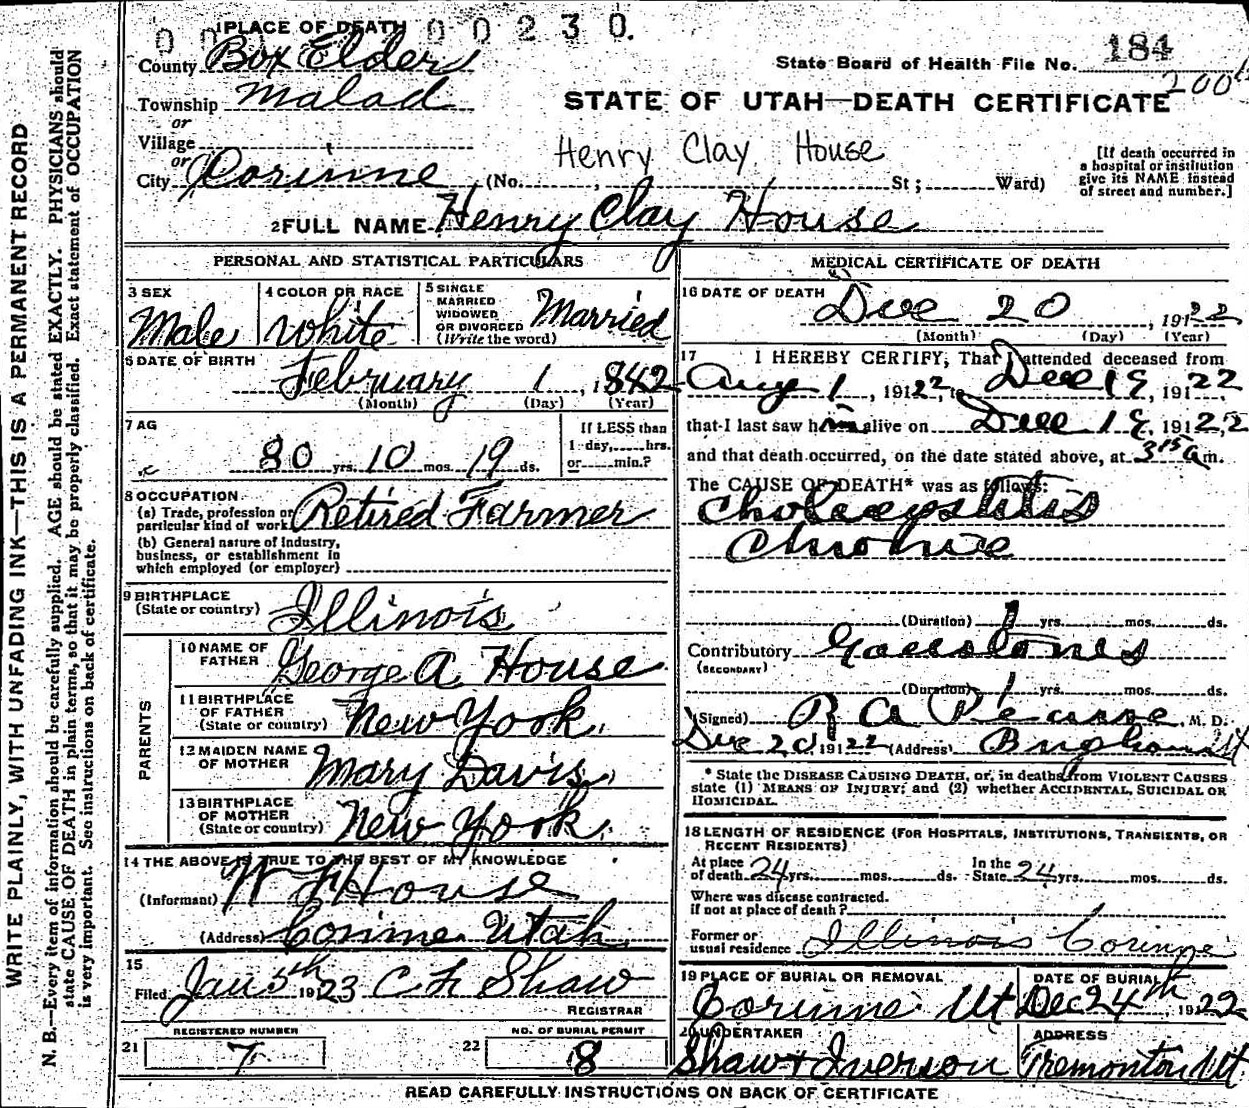 1 PLACE OF DEATH 0 0 0 0 2 3 0.
County Box Elder
State Board of Health File No. 184
Township Malad
or
200
STATE OF UTAH—DEATH CERTIFICATE
Village
or
Henry Clay House
City Corinne (No. , St ; Ward)
[If death occurred in
a hospital or institution
give its NAME instead
of street and number.]
2 FULL NAME Henry Clay House
PERSONAL AND STATISTICAL PARTICULARS
3 SEX
Male
4 COLOR OR RACE
White
5 SINGLE
MARRIED
WIDOWED
OR DIVORCED
(Write the word)
Married
6 DATE OF BIRTH
February 1, 1842
(Month) (Day) (Year)
7 AG
80 yrs. 10 mos. 19 ds.
If LESS than
1 day, hrs.
or min.?
8 OCCUPATION
(a) Trade, profession or
particular kind of work Retired Farmer
(b) General nature of industry,
business, or establishment in
which employed (or employer)
9 BIRTHPLACE
(State or country) Illinois
PARENTS
10 NAME OF
FATHER George A House
11 BIRTHPLACE
OF FATHER
(State or country) New York
12 MAIDEN NAME
OF MOTHER Mary Davis
13 BIRTHPLACE
OF MOTHER
(State or country) New York
14 THE ABOVE IS TRUE TO THE BEST OF MY KNOWLEDGE
(Informant) W F House
(Address) Corinne Utah
15
Filed Jan 5th 1923 C F Shaw
REGISTRAR
21 REGISTERED NUMBER
7
22 NO. OF BURIAL PERMIT
8
MEDICAL CERTIFICATE OF DEATH
16 DATE OF DEATH
Dec 20, 191 22
(Month) (Day) (Year)
17 I HEREBY CERTIFY, That I attended deceased from
Aug 1, 191 22, to Dec 19, 191 22
that I last saw him alive on Dec 19, 191 22
and that death occurred, on the date stated above, at 3 15 a m.
The CAUSE OF DEATH* was as follows:
Cholecystitis
Chronic
(Duration) 1 yrs. mos. ds.
Contributory Gallstones
(SECONDARY)
(Duration) 1 yrs. mos. ds.
(Signed) R A Pearse, M. D.
Dec 20 191 22 (Address) Brigham Ut
* State the DISEASE CAUSING DEATH, or, in deaths from VIOLENT CAUSES
state (1) MEANS OF INJURY; and (2) whether ACCIDENTAL, SUICIDAL OR
HOMICIDAL.
18 LENGTH OF RESIDENCE (FOR HOSPITALS, INSTITUTIONS, TRANSIENTS, OR
RECENT RESIDENTS)
At place
of death 24 yrs. mos. ds. In the
State 24 yrs. mos. ds.
Where was disease contracted.
if not at place of death?
Former or
usual residence Illinois Corinne
19 PLACE OF BURIAL OR REMOVAL
Corinne Ut
DATE OF BURIAL
Dec 24th, 19122
20 UNDERTAKER
Shaw & Iverson
ADDRESS
Tremonton Ut
READ CAREFULLY INSTRUCTIONS ON BACK OF CERTIFICATE
WRITE PLAINLY, WITH UNFADING INK—THIS IS A PERMANENT RECORD
N. B.—Every item of information should be carefully supplied. AGE should be stated EXACTLY. PHYSICIANS should
state CAUSE OF DEATH in plain terms, so that it may be properly classified. Exact statement of OCCUPATION
is very important. See instructions on back of certificate.